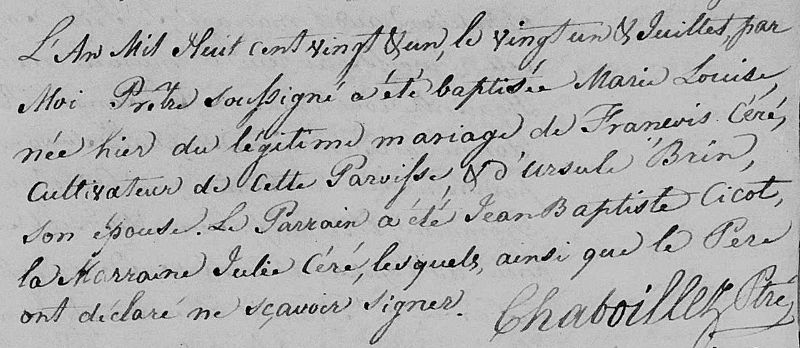 L'An Mil Huit cent vingt & un, le vingt un & Juillet, par
Moi Prêtre soussigné a été baptisée Marie Louise,
née hier du légitime mariage de François Céré,
Cultivateur de cette Paroisse, & d'Ursule Brin,
son épouse. Le Parrain a été Jean Baptiste Cicot,
la Marraine Julie Céré, lesquels, ainsi que le Pere
ont déclaré ne sçavoir signer.
Chaboillez Ptre